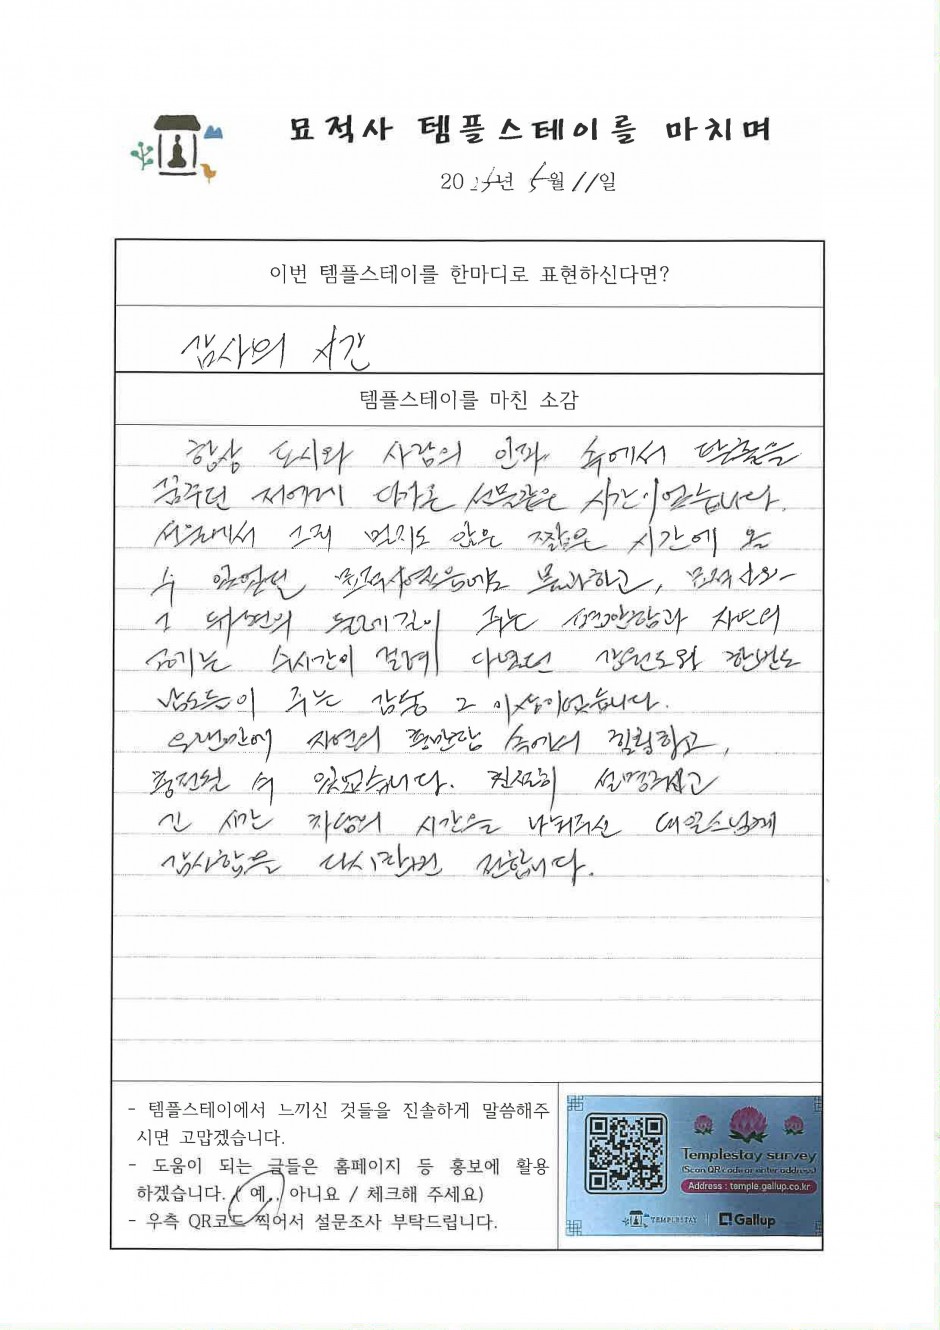 묘적사 템플스테이를 마치며
20 년 5월 11일
이번 템플스테이를 한마디로 표현하신다면?
감사의 시간
템플스테이를 마친 소감
항상 도시와 사람의 인파 속에서
꿈꾸던 저에게 다가온 선물같은 시간이었습니다.
서울에서 그리 멀지도 않은 짧은 시간에 올
수 불과하고,
그 뒤편의 둘레길이 주는 자연의
공기는 수시간이 걸려 다녔던 강원도와 한반도
남도등이 주는 감동 그 이상이었습니다.
오랜만에 자연의 평안함 속에서 힐링하고,
충전될 수 있었습니다. 친절히 설명해주시고
긴 시간 차담의 시간을 나눠주신
감사함을 다시한번 전합니다.
- 템플스테이에서 느끼신 것들을 진솔하게 말씀해주
시면 고맙겠습니다.
- 도움이 되는 글들은 홈페이지 등 홍보에 활용
하겠습니다. ( 예, 아니요 / 체크해 주세요)
- 우측 QR코드 찍어서 설문조사 부탁드립니다.
Templestay survey
(Scan QR code or enter address)
Address : temple.gallup.co.kr
TEMPLESTAY Gallup